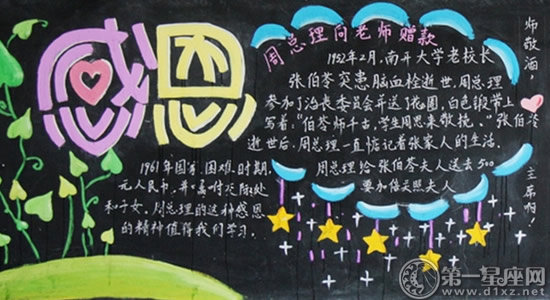 感恩
周总理向老师赠款
1952年2月,南开大学老校长
张伯苓突患脑血栓逝世,周总理
参加了治丧委员会并送了花圈,白色缎带上
写着:"伯苓师千古,学生周恩来敬挽。"张伯苓
逝世后,周总理一直惦记着张家人的生活。
周总理给张伯苓夫人送去500
元人民币,并
要加倍关照夫人
1961年国家困难时期,
和子女。周总理的这种感恩
的精神值得我们学习。
师敬酒,
主席啊!
第一星座网
www.d1xz.net